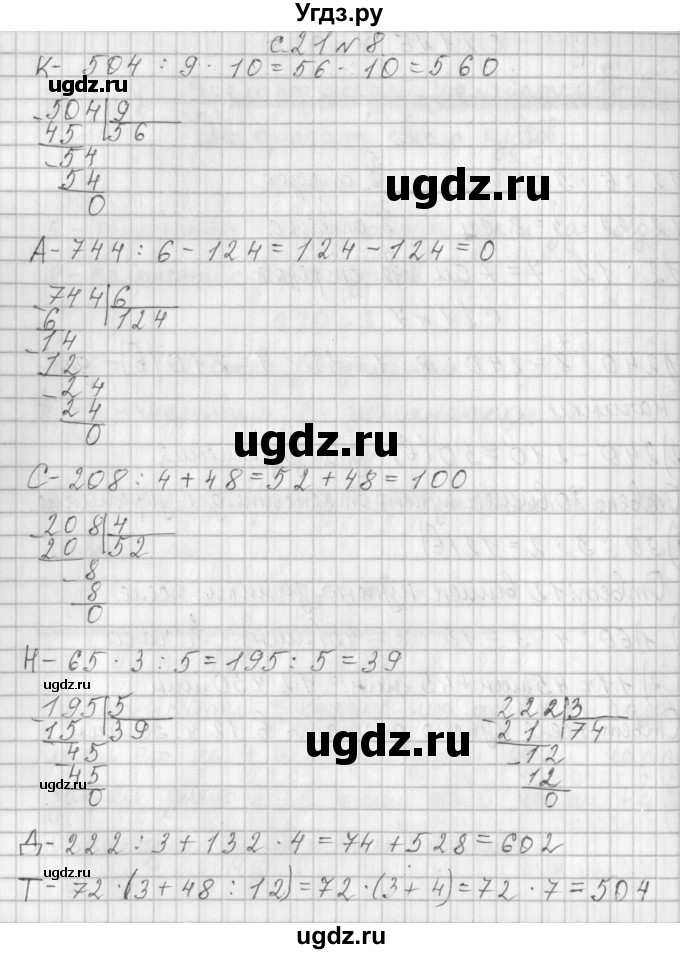 Угдз.ру
с.21 №8
К- 504 : 9 · 10 = 56 · 10 = 560
504 9
45 56
54
54
0
ugdz.ru
А - 744 : 6 - 124 = 124 - 124 = 0
744 6
6 124
14
12
24
24
0
ugdz.ru
С - 208 : 4 + 48 = 52 + 48 = 100
208 4
20 52
8
8
0
Н - 65 · 3 : 5 = 195 : 5 = 39
ugdz.ru
195 5
15 39
45
45
0
ugdz.ru
ugdz.ru
222 3
21 74
12
12
0
Д - 222 : 3 + 132 · 4 = 74 + 528 = 602
ugdz.ru
Т - 72 · (3 + 48 : 12) = 72 · (3 + 4) = 72 · 7 = 504
ugdz.ru